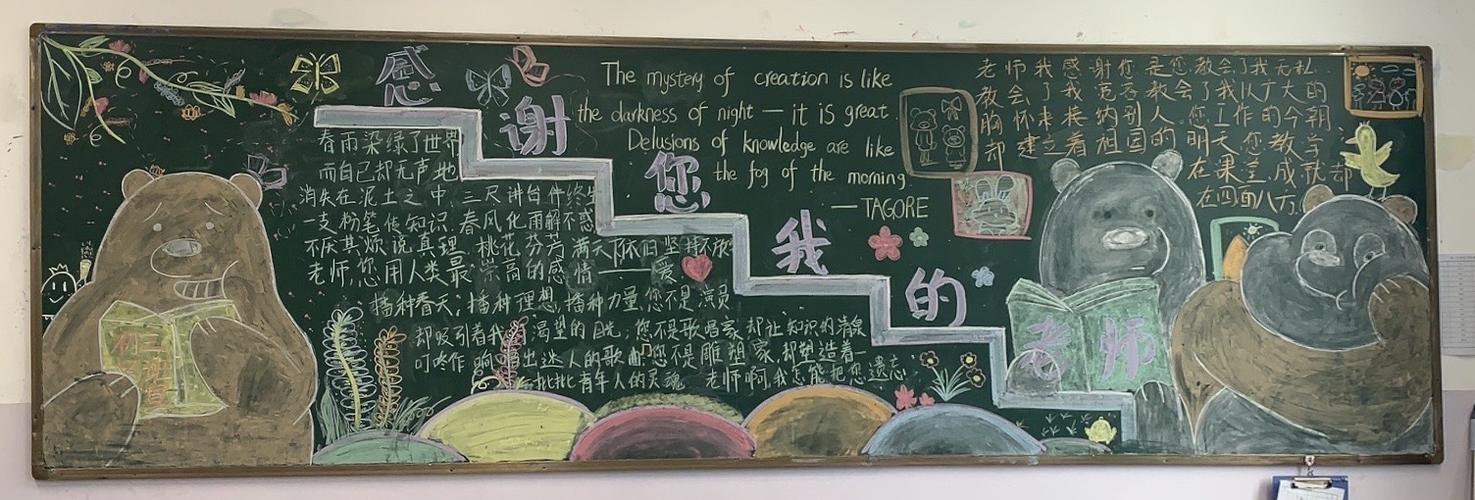 感谢您我的老师
春雨染绿了世界
而自己却无声地
消失在泥土之中 三尺讲台伴终生
一支粉笔传知识 春风化雨解不惑
不厌其烦说真理 桃花芬芳满天下依旧坚持不放
老师,您用人类最崇高的感情——爱
播种春天,播种理想,播种力量,您不是演员
却吸引着我们渴望的目光;您不是歌唱家,却让知识的清泉
叮咚作响,唱出迷人的歌曲,您不是雕塑家,却塑造着一
批批青年人的灵魂 老师啊,我怎能把您遗忘
The mystery of creation is like
the darkness of night — it is great.
Delusions of knowledge are like
the fog of the morning.
— TAGORE
老师我感谢您是您教会了我无私
教会了我宽容教会了我以广大的
胸怀来接纳别人。您工作的今朝
却建立着祖国的明天,您教学
在果 成就却
在四面八方